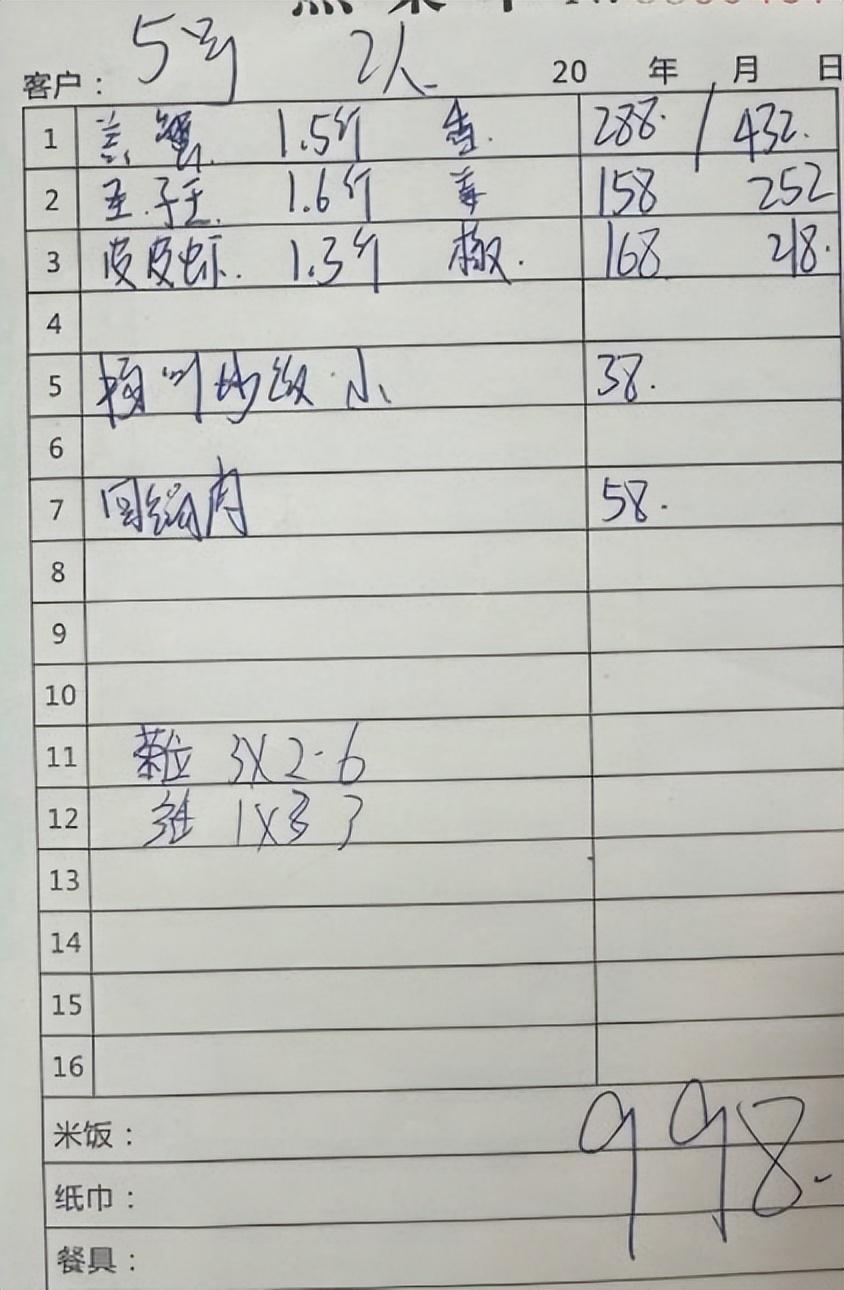 客户： 5号 2人 20 年 月 日
1 1.5斤 288. / 432.
2 1.6斤 158 252
3 皮皮虾. 1.3斤 椒. 168 218.
4
5 小 38.
6
7 回锅肉 58.
8
9
10
11 茶位 3X2 - 6
12 纸 1X3 3
13
14
15
16
米饭：
998.
纸巾：
餐具：